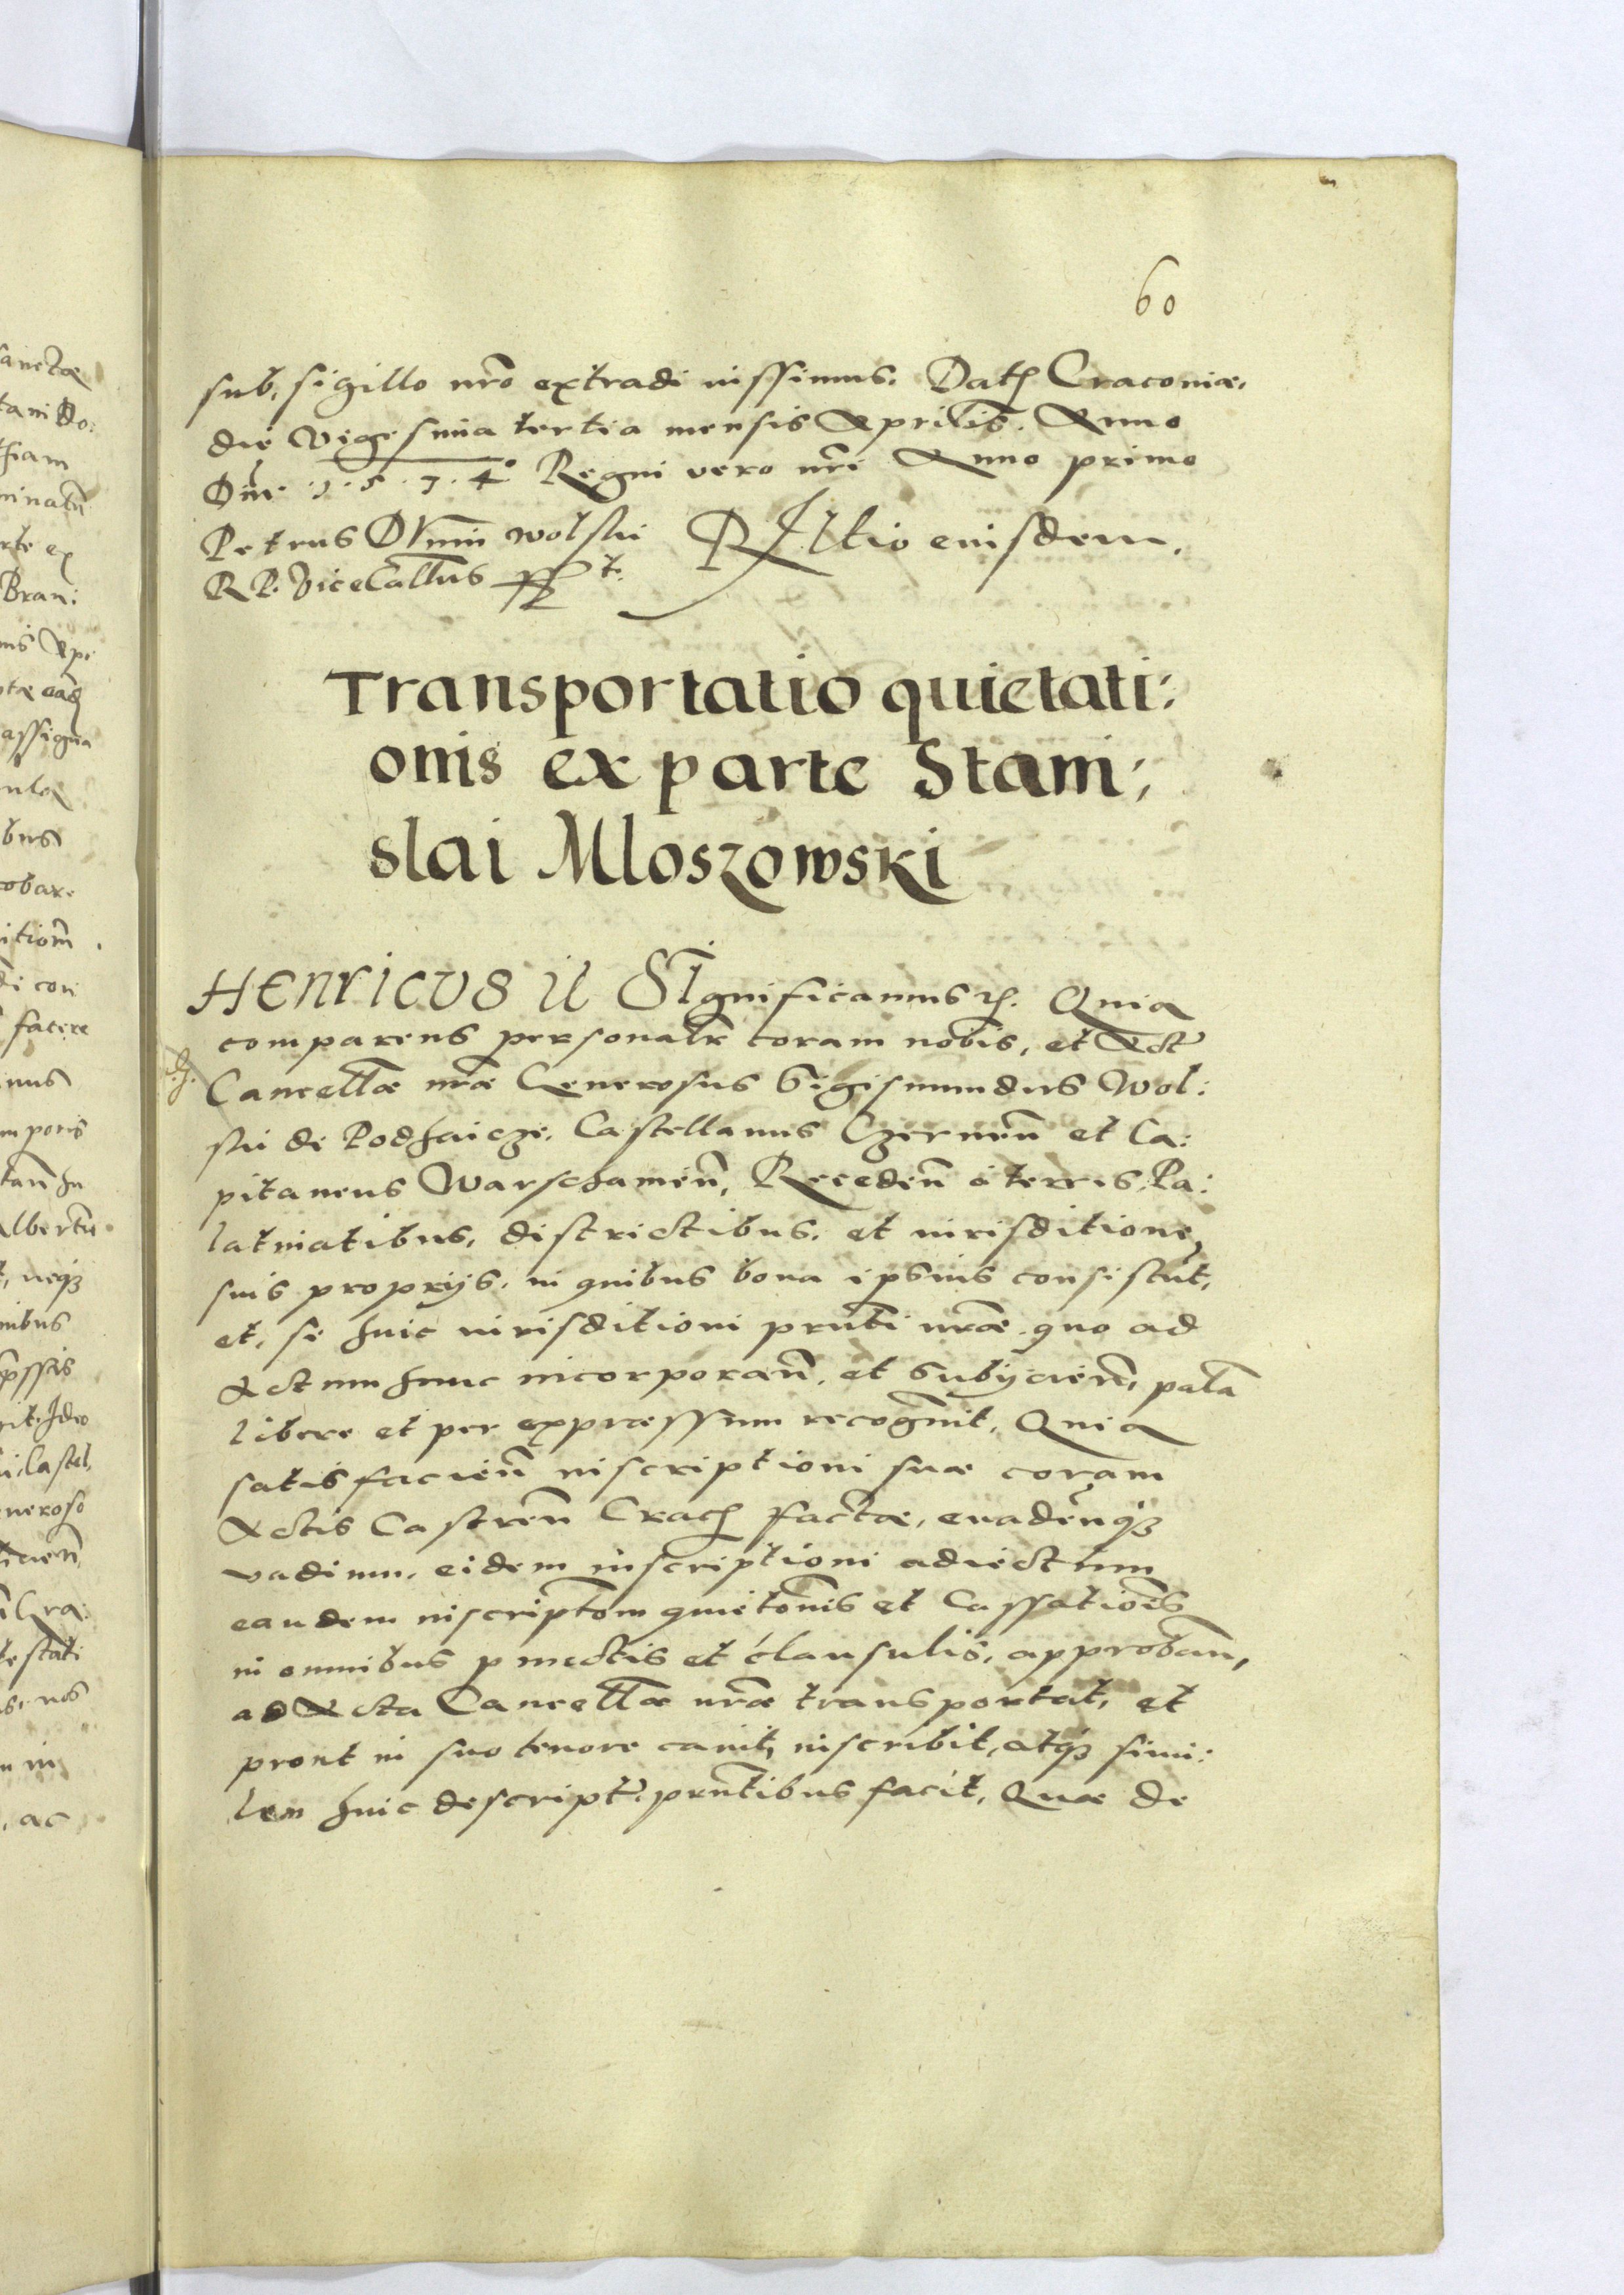 60
sub, sigillo nr̃o extradi iussimus. Datɥ Cracoviæ.
die Vigesima tertia mensis Aprilis. Anno
Dñi. 1.5.7.4° Regni vero nr̃i Anno primo
Petrus Dunin wolski Rłłtio eiusdem.
R P. Vicecałłus sst.
Transportatio quietati:
onis ex parte Stani:
slai Mloszowski
Henricus ił Significamus ꝛc. Quia
comparens personalr̃ coram nobis, et Actꝭ
Cancellæ nr̃æ Generosus Sigismundus Wol:
ski de Podhaicze, Castellanus Czerneñ et Ca:
pitaneus Warschavieñ, Recedeñ a terris, Pa:
latinatibus, districtibus, et iurisditione,
suis proprijs, in quibus bona ipsius consistũt,
et, se huic iurisditioni prñti nr̃æ quo ad
Actum hunc incorporañ, et Subijcieñ, palã
libere et per expressum recognvit, Quia
satisfacieñ inscriptioni suæ coram
Actis Castreñ Cracɥ factæ, evadeñqȝ
vadium, eidem inscriptioni adiectum
eandem inscriptõm quietõnis et Cassatiõis
in omnibus punctis et clausulis, approbañ,
ad Acta Cancellæ nr̃æ transportat, et
prout in suo tenore canit, inscribit, atqȝ simi:
lem huic descriptꝭ prñtibus facit, Quæ de